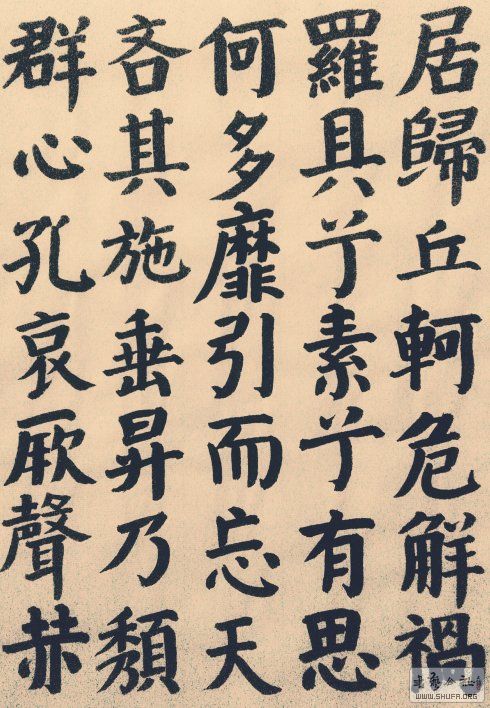 居歸丘軻危解禍
羅具素有思
何多靡引而忘天
吝其施垂昇乃頽
群心孔哀厥聲赫
WWW.SHUFA.ORG